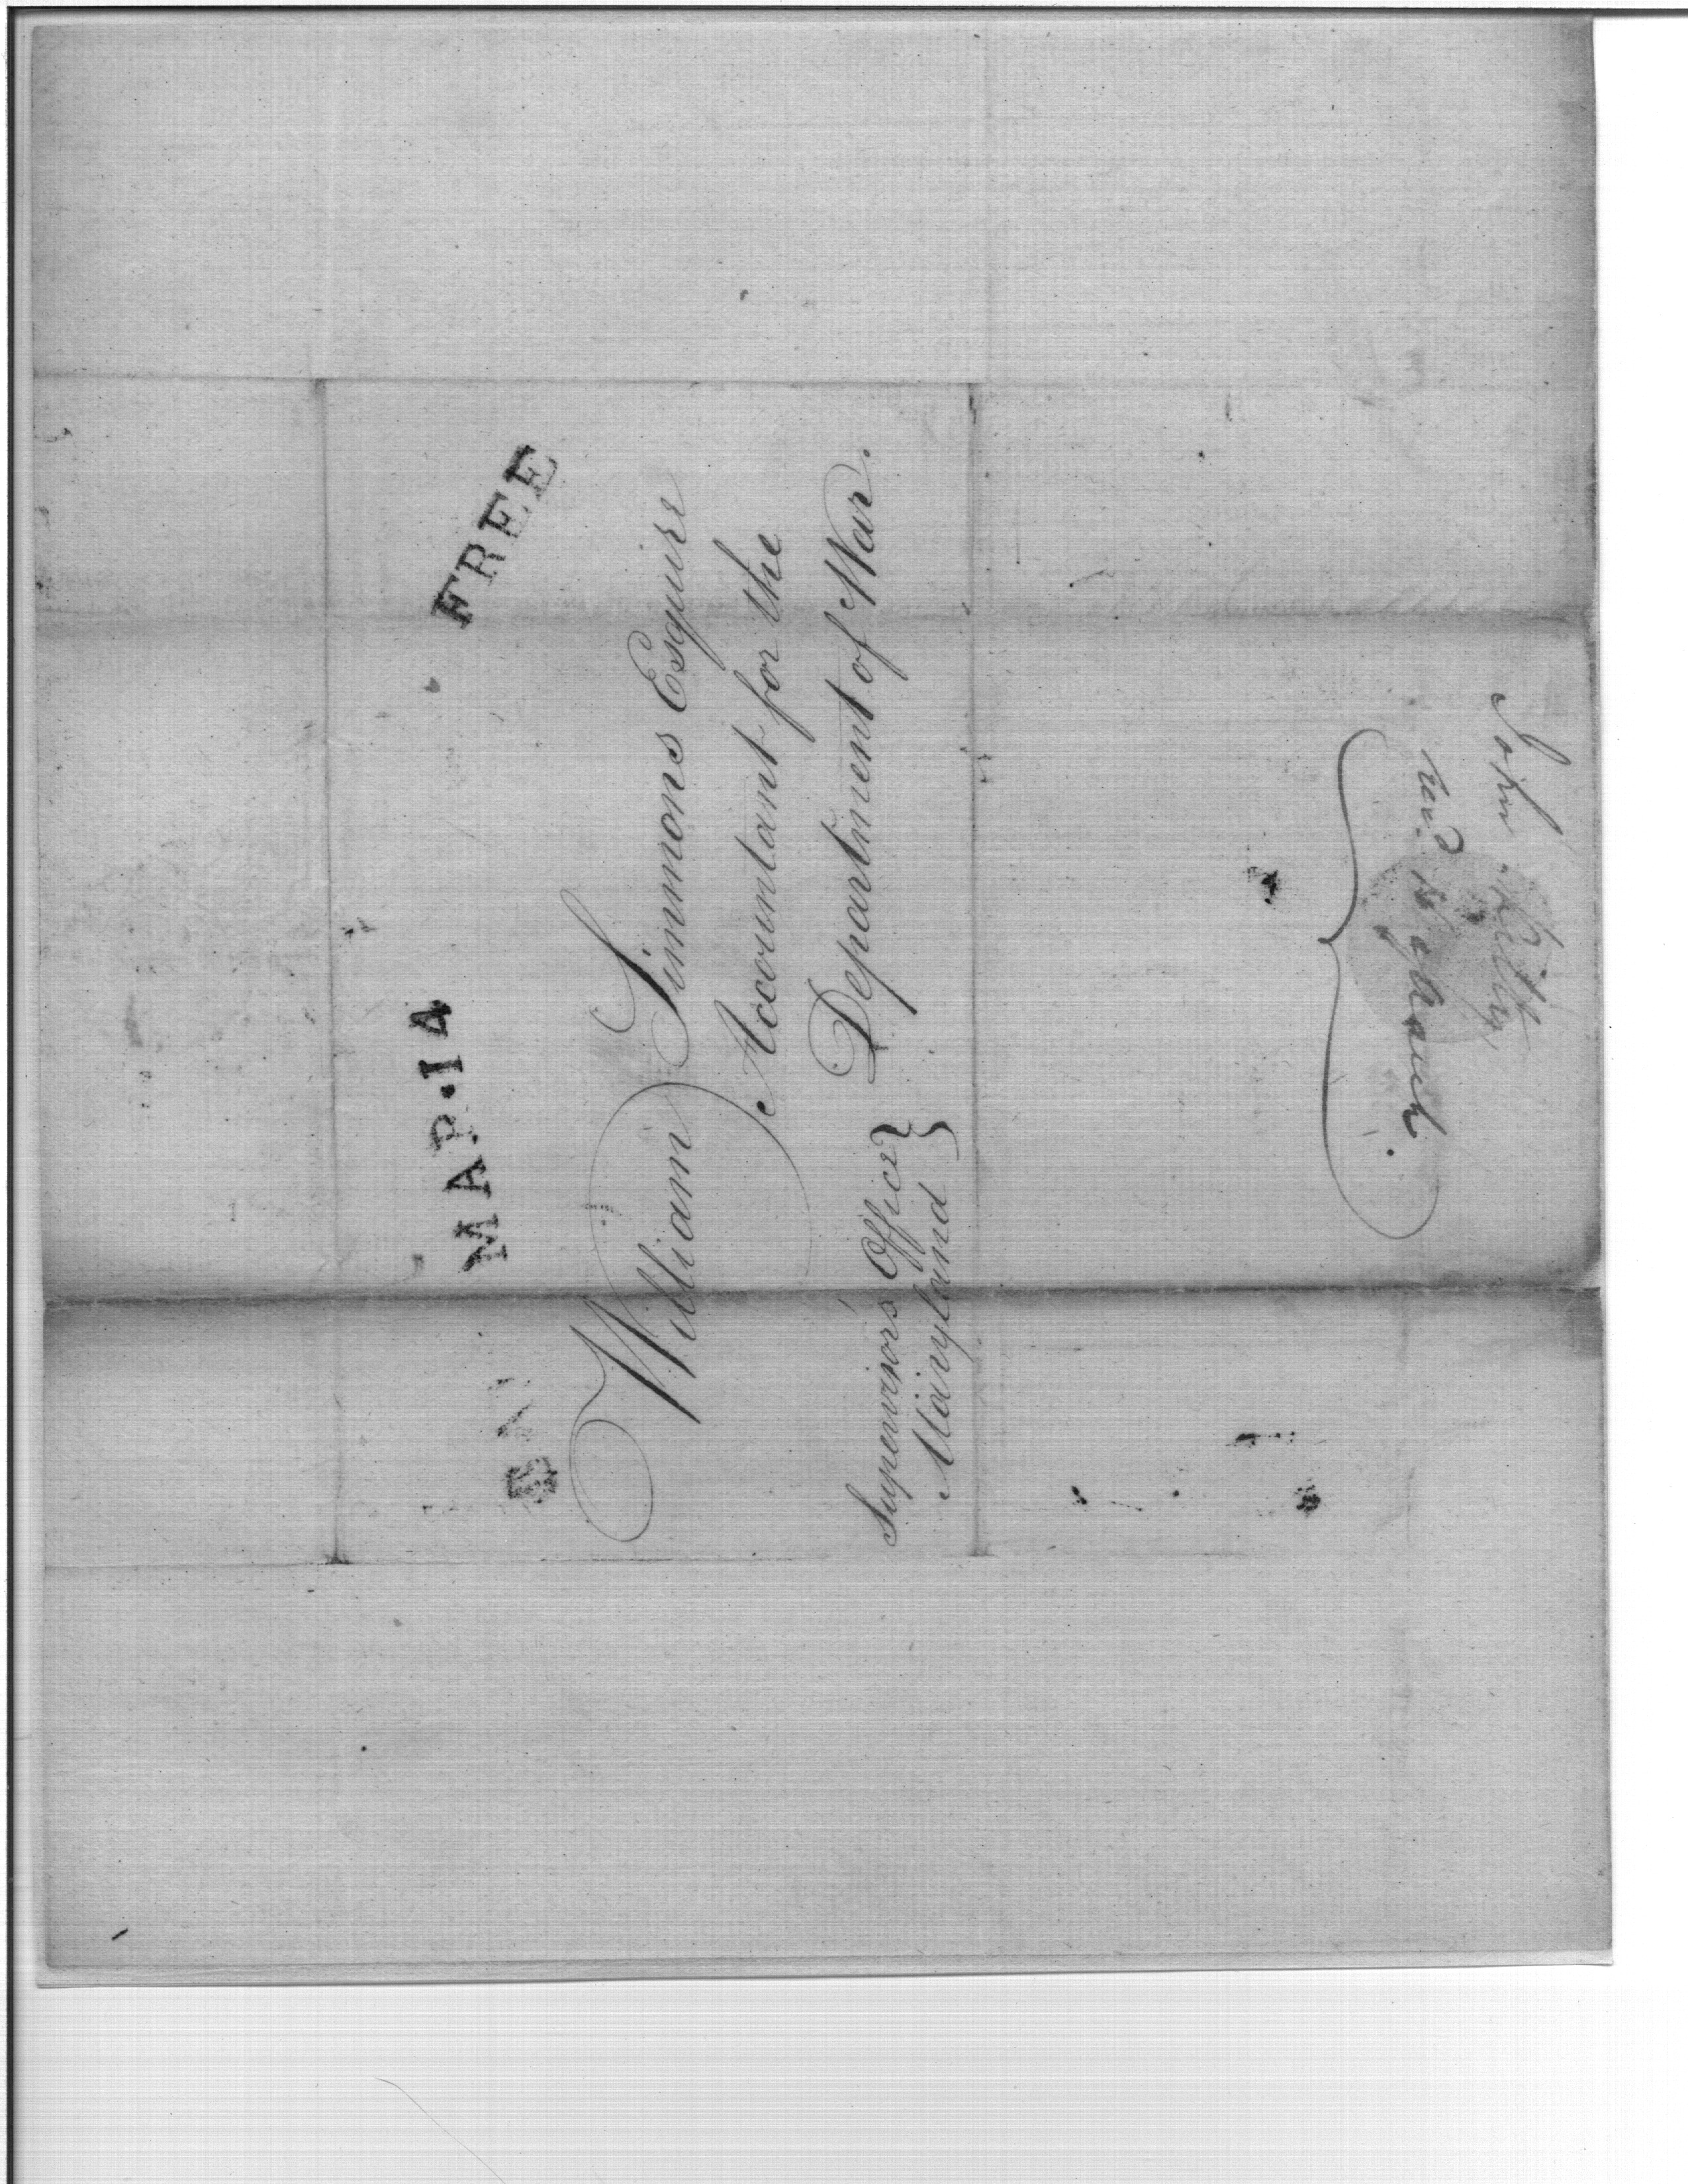 MAR·14
FREE
William Simmons Esquire
Accountant for the
Department of War.
Supervisor's Office }
Maryland }
John Kilty
rec.d 15 March.